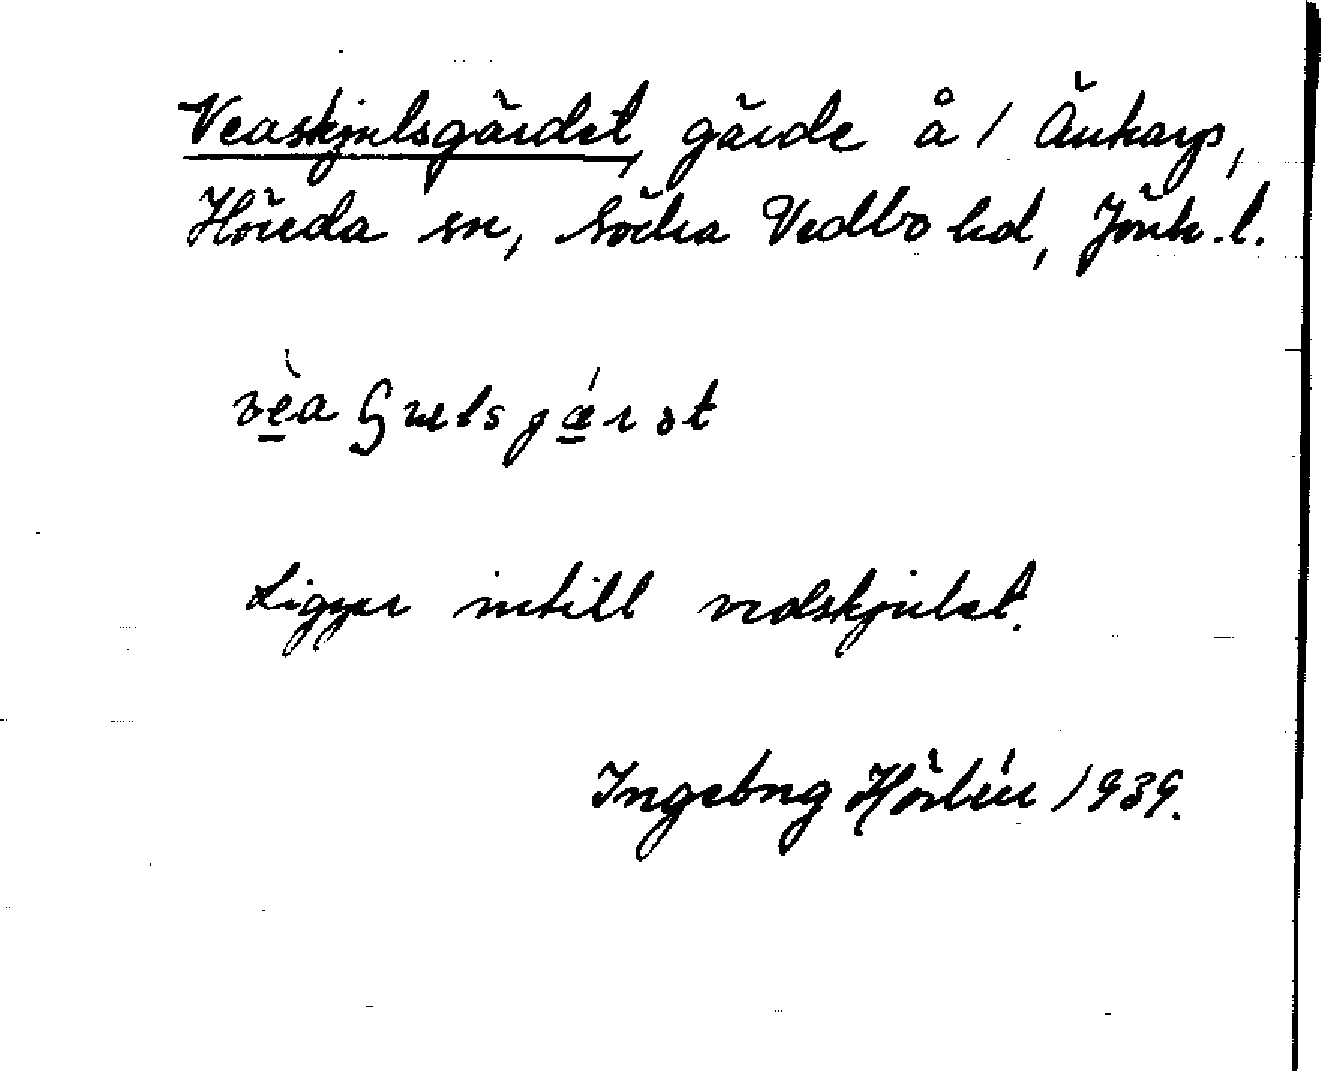 Veaskjulsgärdet, gärde å 1 Änkarp,
Höreda sn, Södra Vedbo hd, Jönk. l.
Ligger intill vedskjulet.
Ingeborg Hörlén 1939.